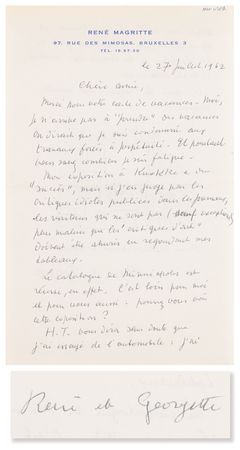 RENÉ MAGRITTE
97, RUE DES MIMOSAS, BRUXELLES 3
TEL. 15.97.30
le 27 juillet 1962
Chère amie,
Merci pour votre carte de vacances. Moi,
je n'arrive pas à "prendre" des vacances
en disant que je suis condamné aux
travaux forcés à perpétuité. Et pourtant
vous savez combien je suis fatigué.
Mon exposition à Knokke a du
"succès", mais si j'en juge par les
critiques idiotes publiées dans les journaux,
les visiteurs qui ne sont pas (sauf exceptions)
plus malins que les "critiques d'art"
doivent être ahuris en regardant mes
tableaux.
Le catalogue de Minneapolis est
réussi, en effet. C'est loin pour moi
et pour vous aussi : pourrez vous voir
cette exposition ?
H.T. vous dira sans doute que
j'ai essayé de l'automobile : j'ai
René et Georgette